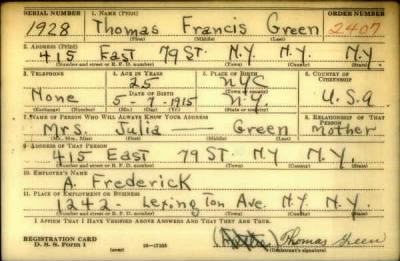 SERIAL NUMBER 1. NAME (Print) ORDER NUMBER
1928 Thomas Francis Green 2407
(First) (Middle) (Last)
2. ADDRESS (Print)
415 East 79 ST. N.Y. N.Y. N.Y
(Number and street or R. F. D. number) (Town) (County) (State)
3. TELEPHONE 4. AGE IN YEARS 5. PLACE OF BIRTH 6. COUNTRY OF CITIZENSHIP
25 NYC
DATE OF BIRTH (Town or county)
None 5-7-1915 N.Y. U.S.a
(Exchange) (Number) (Mo.) (Day) (Yr.) (State or country)
7. NAME OF PERSON WHO WILL ALWAYS KNOW YOUR ADDRESS 8. RELATIONSHIP OF THAT PERSON
Mrs. Julia — Green Mother
(Mr., Mrs., Miss) (First) (Middle) (Last)
9. ADDRESS OF THAT PERSON
415 East 79 ST. N.Y N.Y.
(Number and street or R. F. D. number) (Town) (County) (State)
10. EMPLOYER'S NAME
A. Frederick
11. PLACE OF EMPLOYMENT OR BUSINESS
1242- Lexington Ave. N.Y. N.Y.
(Number and street or R. F. D. number) (Town) (County) (State)
I AFFIRM THAT I HAVE VERIFIED ABOVE ANSWERS AND THAT THEY ARE TRUE.
REGISTRATION CARD
D. S. S. Form 1 (over) 16—17105 Thomas Green